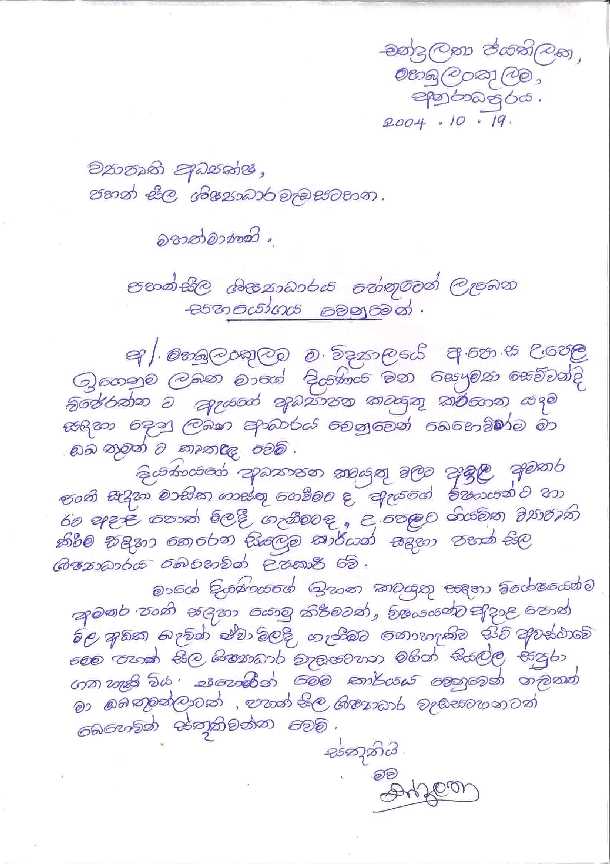 චන්ද්‍රලතා ජයතිලක,
මහබුලංකුලම,
අනුරාධපුරය.
2004 . 10 . 19.
ව්‍යාපෘති අධ්‍යක්ෂ,
පහන් සිල ශිෂ්‍යාධාර වැඩසටහන.
මහත්මාණනි.
පහන්සිල ශිෂ්‍යාධාරය හේතුවෙන් ලැබෙන
සහයෝගය වෙනුවෙන්.
අ/ මහබුලංකුලම ම. විද්‍යාලයේ අ.පො.ස උ.පෙළ
ඉගෙනුම ලබන මාගේ දියණිය වන සෞම්‍යා සෙව්වන්දි
විජේරත්න ට ඇයගේ අධ්‍යාපන කටයුතු කරගෙන යාම
සඳහා දෙනු ලබන ආධාරය වෙනුවෙන් බෙහෙවින්ම මා
ඔබතුමන් ට කෘතඥ වෙමි.
දියණියගේ අධ්‍යාපන කටයුතු වලට අදාළ අමතර
පංති සඳහා මාසික ගාස්තු ගෙවීමට ද ඇයගේ විෂයයන් ට හා
රට අදාළ පොත් මිලදී ගැනීමටද, උ.පෙළට නියමිත ව්‍යාපෘති
කිරීම සඳහා කෙරෙන සියලුම කාර්යන් සඳහා පහන් සිල
ශිෂ්‍යාධාරය බෙහෙවින් උපකාරී වේ.
මාගේ දියණියගේ ඉහත කටයුතු සඳහා විශේෂයෙන්ම
අමතර පංති සඳහා යොමු කිරීමටත්, විෂයයන්ට අදාළ පොත්
මිල අධික බැවින් ඒවා මිලදී ගැනීමට නොහැකිව සිටි අවස්ථාවේ
මෙම පහන් සිල ශිෂ්‍යාධාර වැඩසටහන මගින් සියල්ල සපුරා
ගත හැකි විය. එහෙයින් මෙම කාර්යය වෙනුවෙන් නැවතත්
මා ඔබතුමන්ලාටත්, පහන් සිල ශිෂ්‍යාධාර වැඩසටහනටත්
බෙහෙවින් ස්තූතිවන්ත වෙමි.
ස්තූතියි
මව
චන්ද්‍රලතා